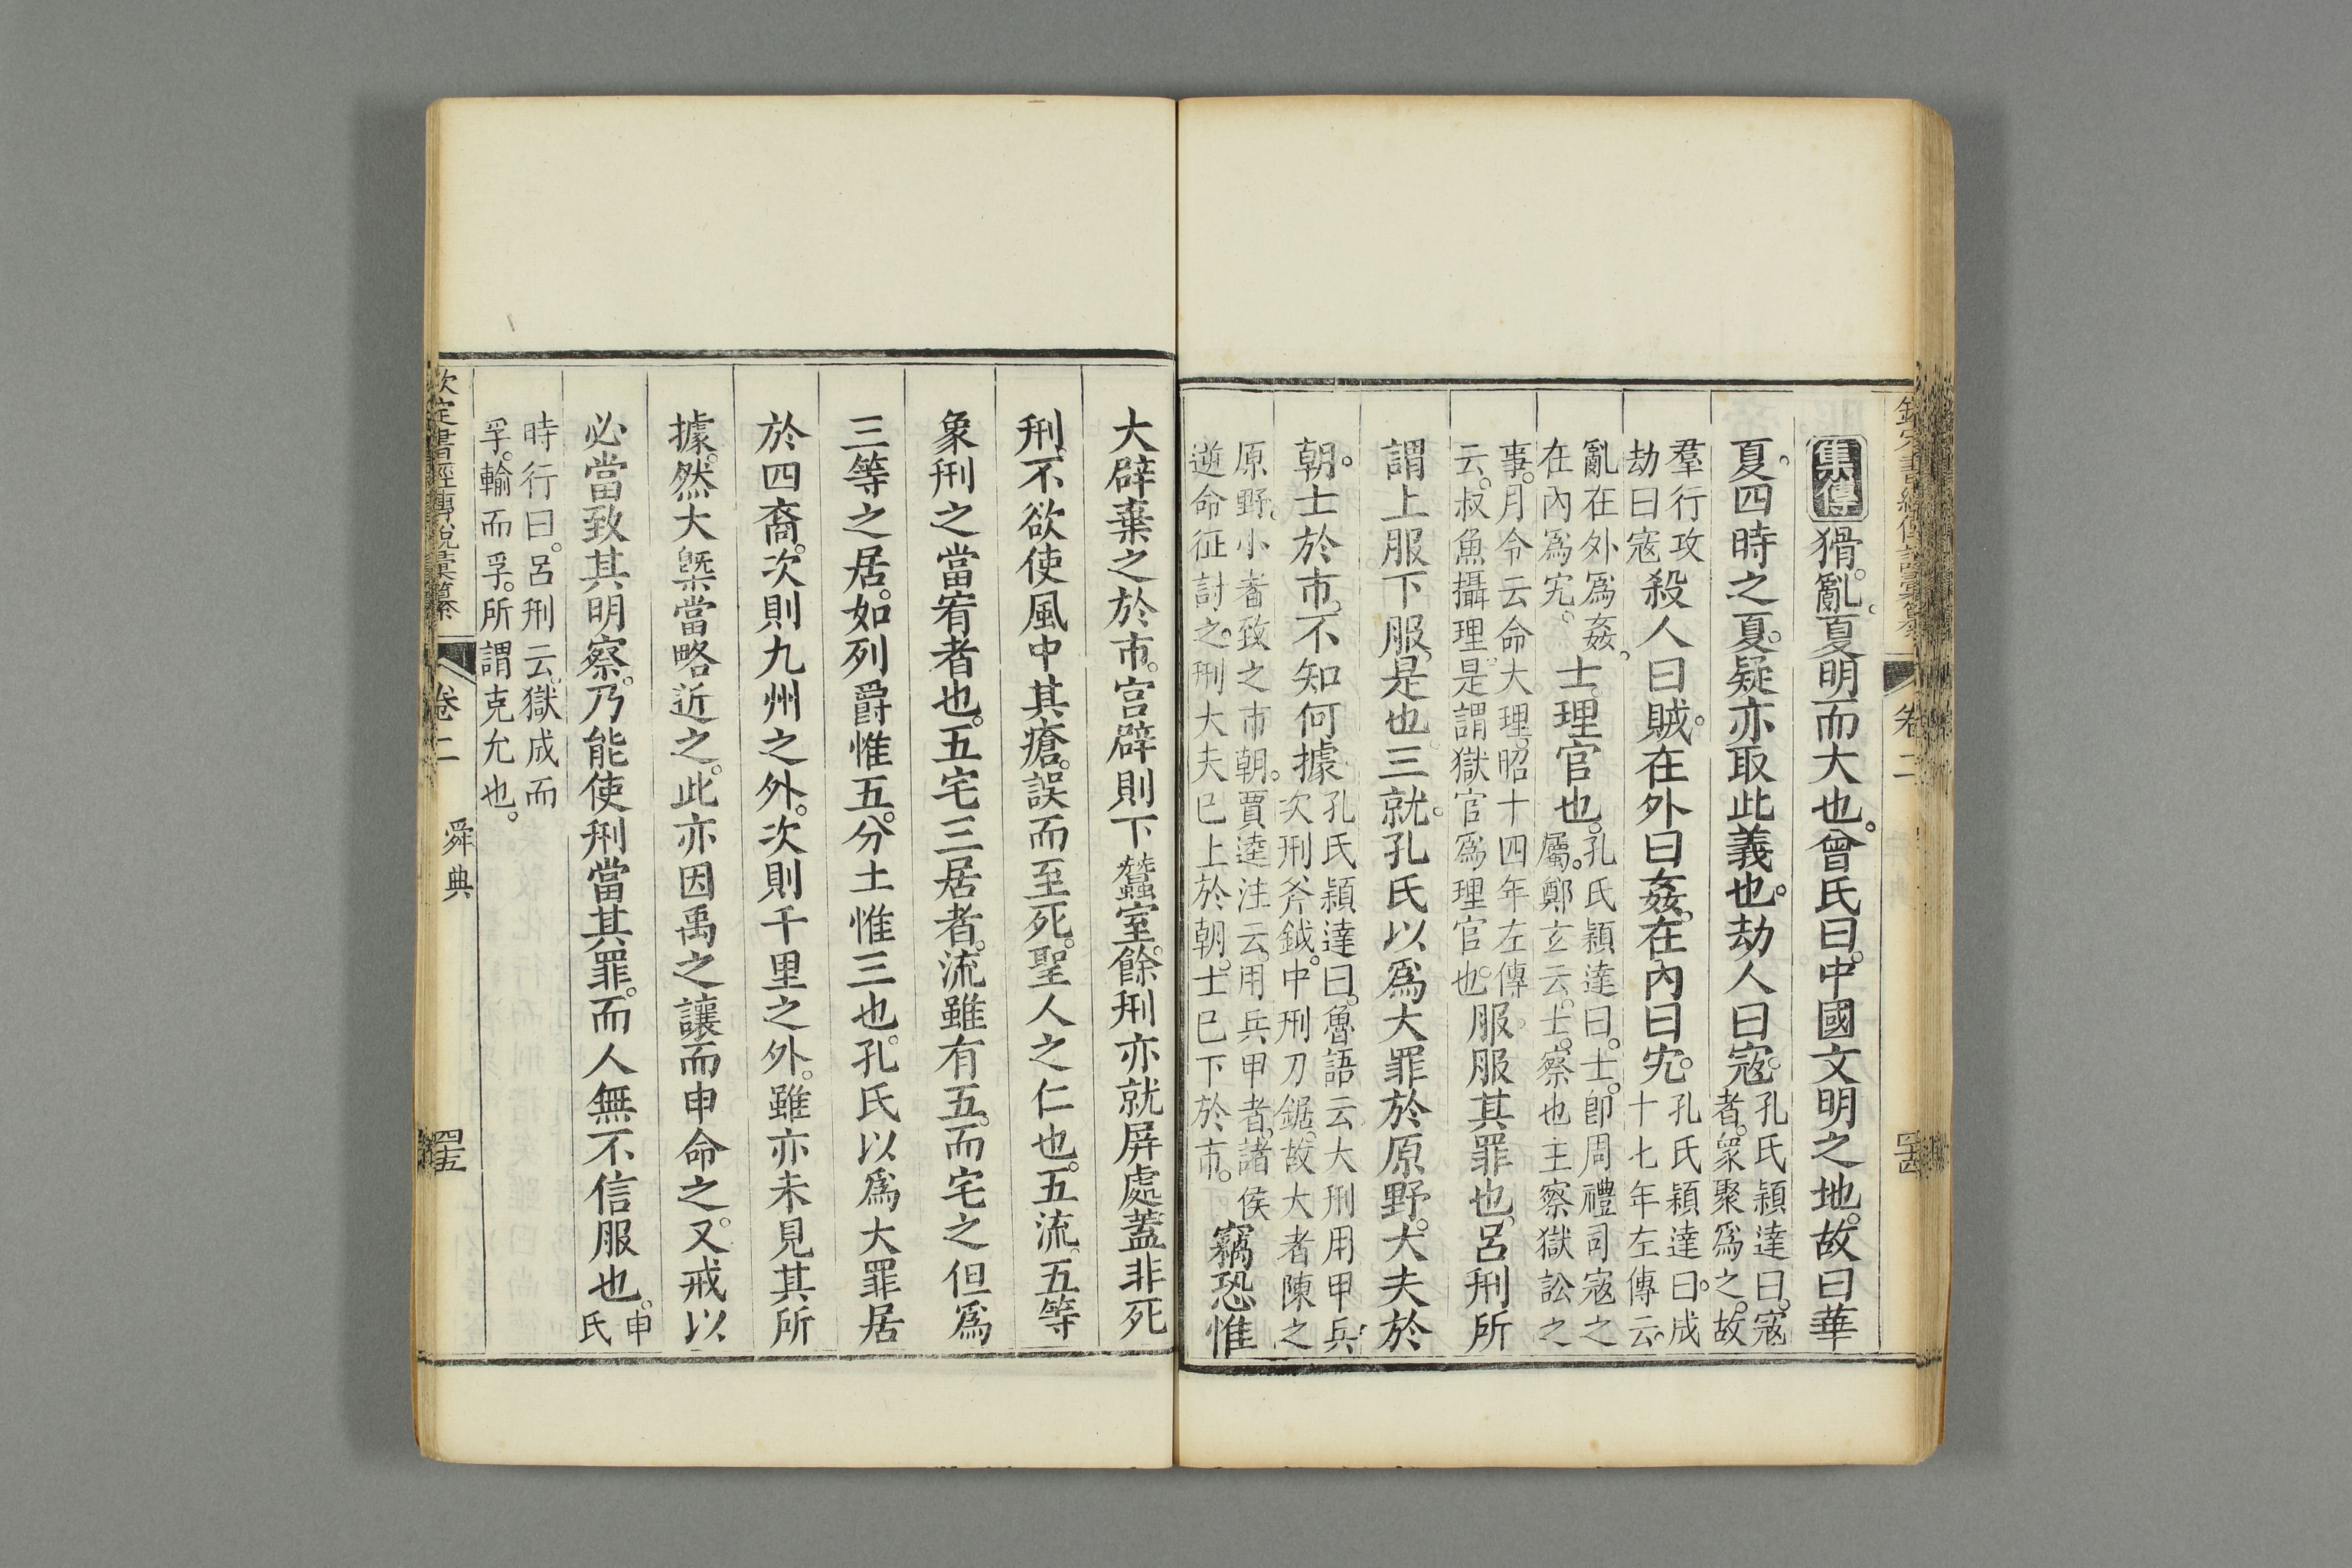 集傳猾亂夏明而大也曾氏曰中國文明之地故曰華
夏四時之夏疑亦取此義也劫人曰寇孔氏穎達曰寇者衆聚爲之故
羣行攻劫曰寇殺人曰賊在外曰姦在內曰宄孔氏穎達曰成十七年左傳云
亂在外爲姦在內爲宄士理官也孔氏穎達曰士卽周禮司寇之屬鄭玄云士察也主察獄訟之
事月令云命大理昭十四年左傳云叔魚攝理是謂獄官爲理官也服服其罪也呂刑所
謂上服下服是也三就孔氏以爲大罪於原野大夫於
朝士於市不知何據孔氏穎達曰魯語云大刑用甲兵次刑斧鉞中刑刀鋸故大者陳之
原野小者致之市朝賈逵注云用兵甲者諸侯逆命征討之刑大夫已上於朝士已下於市竊恐惟
大辟棄之於市宮辟則下蠶室餘刑亦就屏處蓋非死
刑不欲使風中其瘡誤而至死聖人之仁也五流五等
象刑之當宥者也五宅三居者流雖有五而宅之但爲
三等之居如列爵惟五分土惟三也孔氏以爲大罪居
於四裔次則九州之外次則千里之外雖亦未見其所
據然大槩當略近之此亦因禹之讓而申命之又戒以
必當致其明察乃能使刑當其罪而人無不信服也申氏
時行曰呂刑云獄成而孚輸而孚所謂克允也
欽定書經傳說彙纂 卷二 舜典 四五